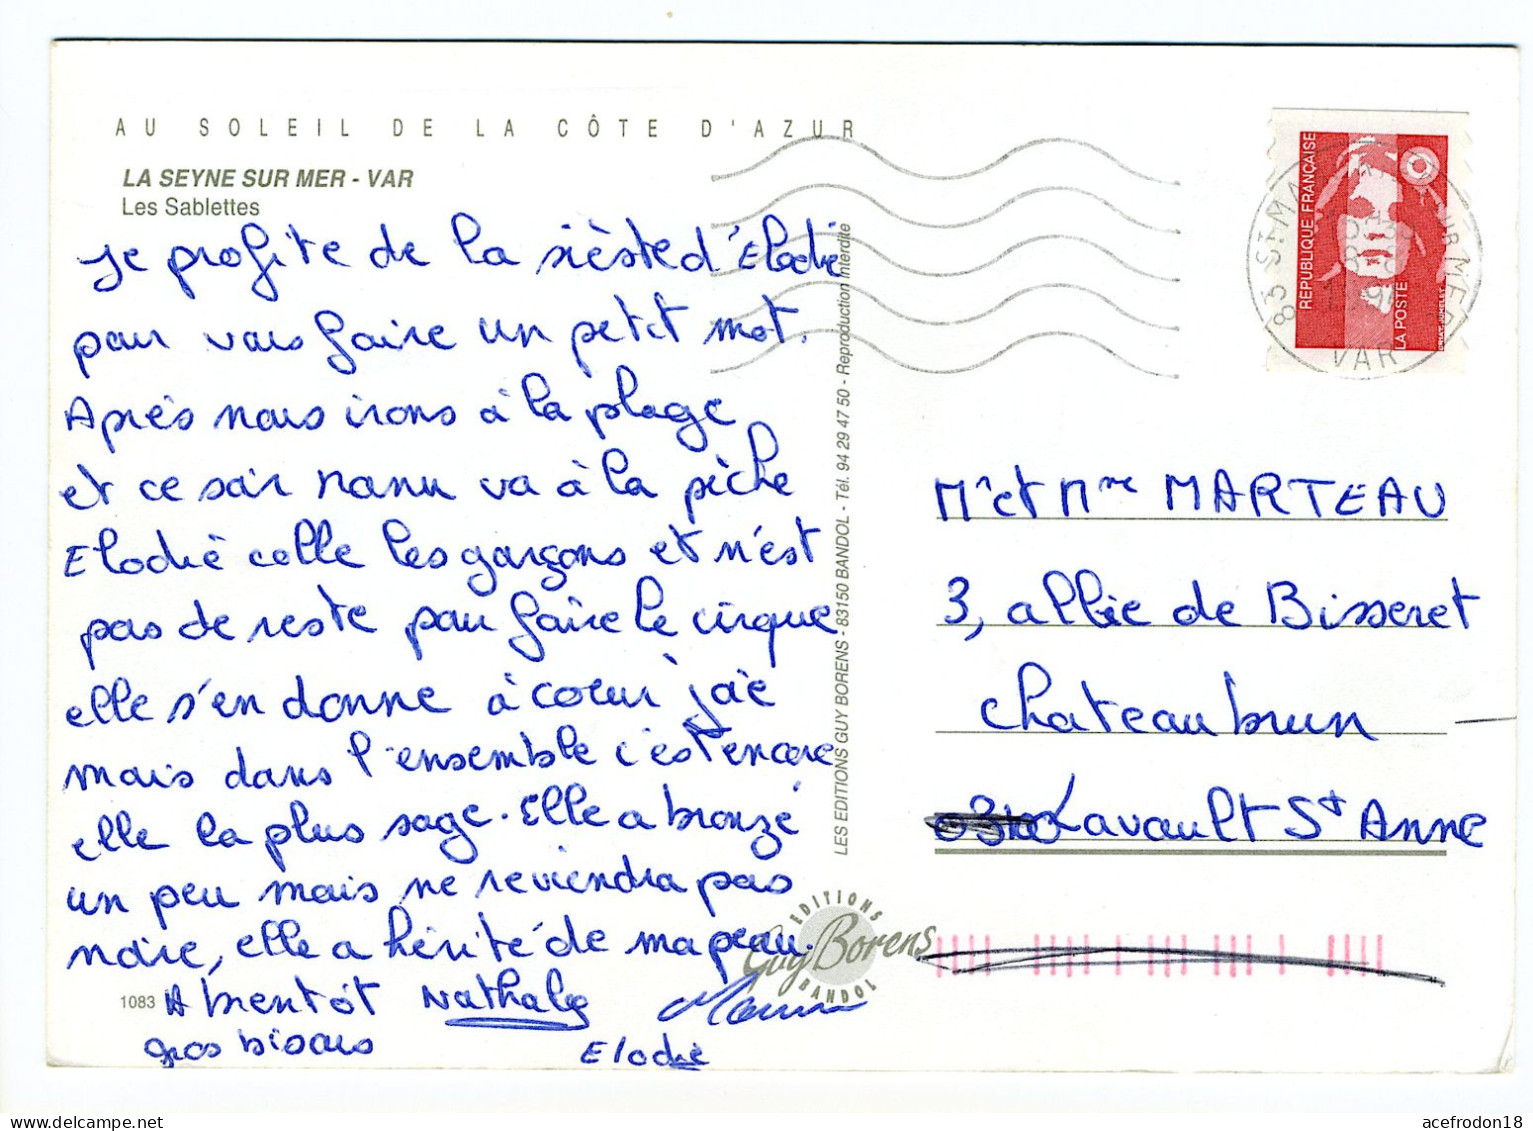 AU SOLEIL DE LA CÔTE D'AZUR
LA SEYNE SUR MER - VAR
Les Sablettes
Je profite de la sièste d'Elodie
pour vous faire un petit mot.
Après nous irons à la plage
et ce soir nanu va à la pèche
Elodie colle les garçons et n'est
pas de reste pour faire le cirque
elle s'en donne à coeur joie
mais dans l'ensemble c'est encore
elle la plus sage. Elle a bronzé
un peu mais ne reviendra pas
noire, elle a hérité de ma peau.
1083
A bientôt Nathalie
gros bisous
Elodie
LES EDITIONS GUY BORENS - 83150 BANDOL - Tél. 94 29 47 50 - Reproduction interdite
EDITIONS
Guy Borens
BANDOL
REPUBLIQUE FRANÇAISE
LA POSTE
83 ST MA
VAR
Mr et Mme MARTEAU
3, allée de Bisseret
Chateaubrun
Lavault St Anne
acefrodon18